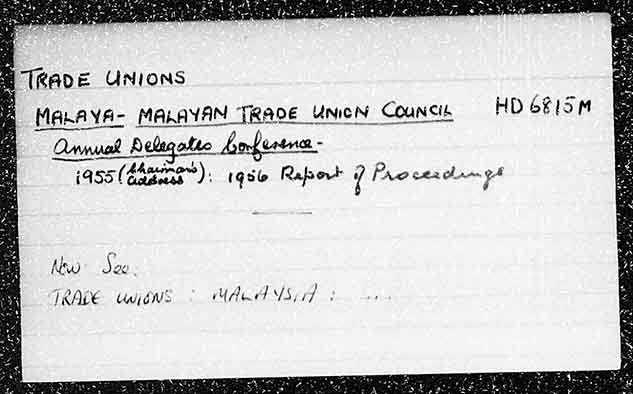 TRADE UNIONS
MALAYA - MALAYAN TRADE UNION COUNCIL HD 6815M
Annual Delegates Conference -
1955 (Chairman's address) : 1956 Report of Proceedings
Now See.
TRADE UNIONS : MALAYSIA : ....